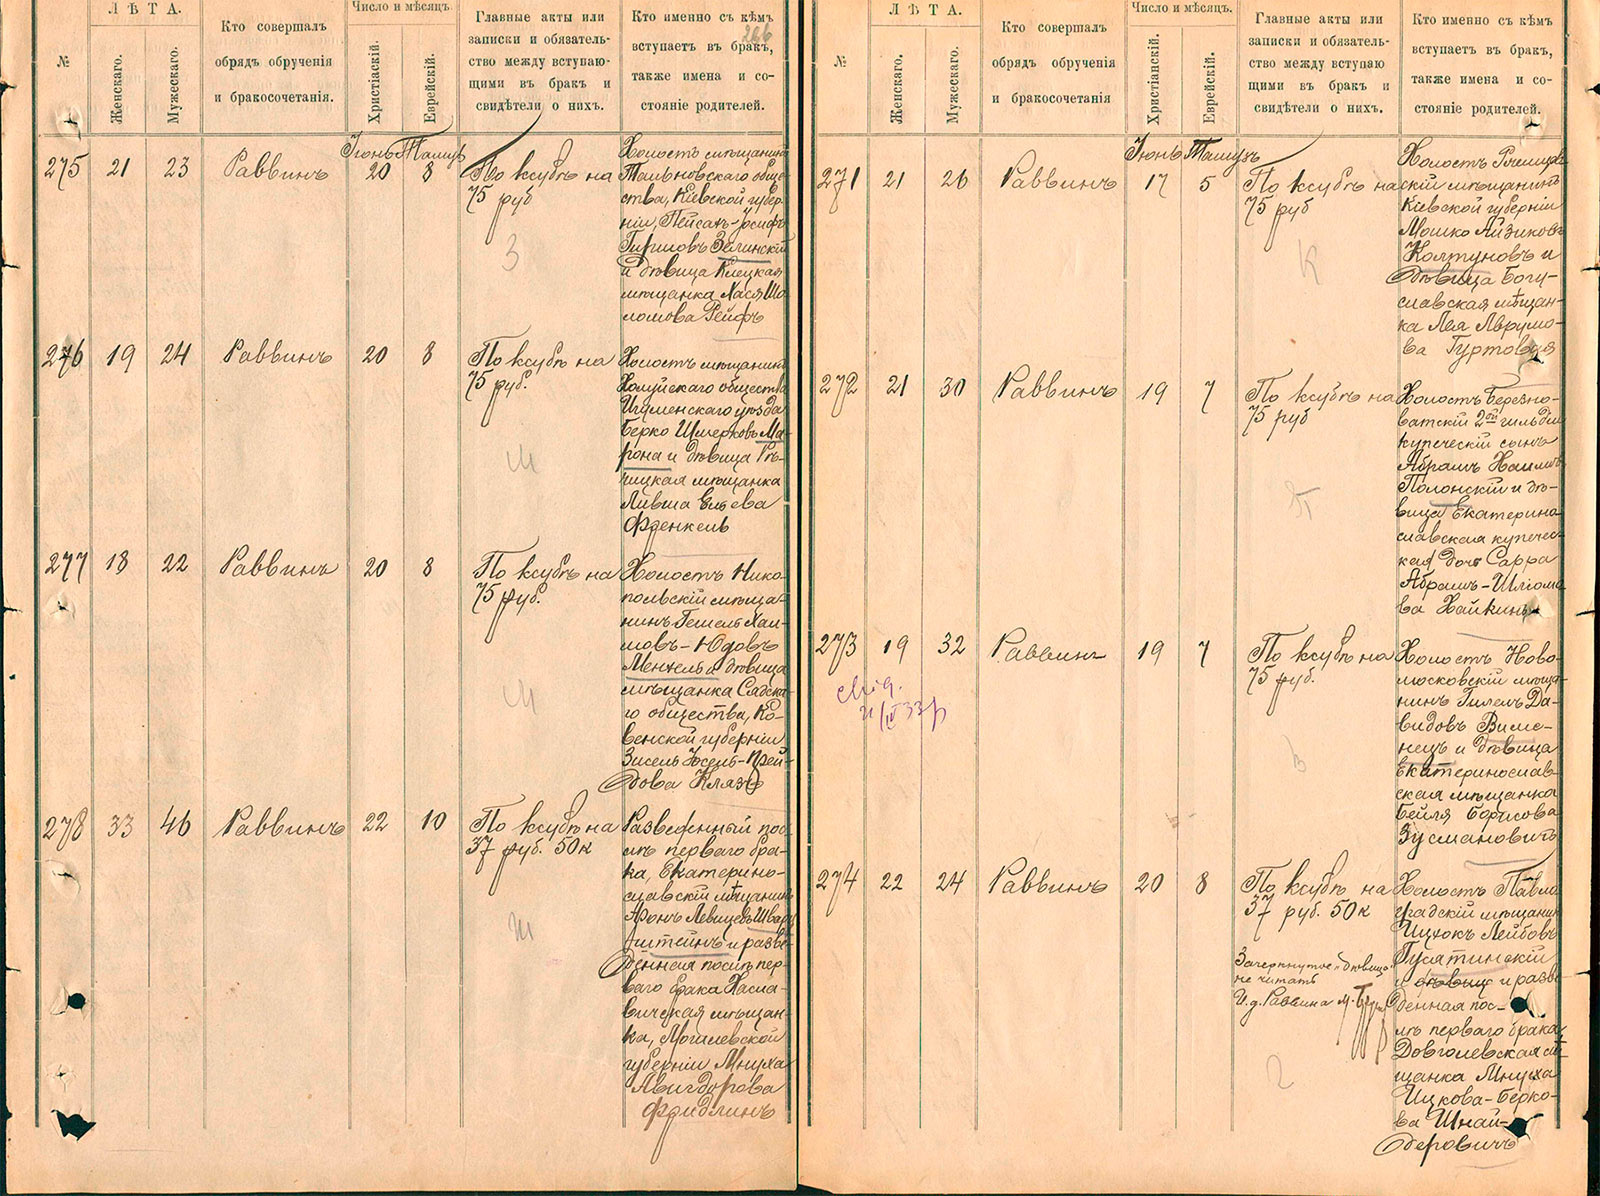 ЛѢТА.
Число и мѣсяцъ.
№
Женскаго.
Мужескаго.
Кто совершалъ
обрядъ обрученія
и бракосочетанія.
Христіаскій.
Еврейскій.
Главные акты или
записки и обязатель-
ство между вступаю-
щими въ бракъ и
свидѣтели о нихъ.
Кто именно съ кѣмъ
266
вступаетъ въ бракъ,
также имена и со-
стояніе родителей.
Іюнь Тамузъ
275 21 23 Раввинъ 20 8
По ксубѣ на
75 руб
З
Холостъ мѣщанинъ
Тальновскаго обще-
ства, Кіевской губер-
ніи, Пейсахъ-Іосифъ
Гиршовъ Зелинскій
и дѣвица Клецкая
мѣщанка Хася Шо-
ломова Рейфъ
276 19 24 Раввинъ 20 8
По ксубѣ на
75 руб.
М
Холостъ мѣщанинъ
Холуйскаго общества
Игуменскаго уѣзда
Берко Шмерковъ Ма-
рона и дѣвица Рѣ-
чицкая мѣщанка
Ливша Ельева
Френкель
277 18 22 Раввинъ 20 8
По ксубѣ на
75 руб.
М
Холостъ Нико-
польскій мѣща-
нинъ Гешель Хаи-
мовъ-Юдовъ
Менхель и дѣвица
мѣщанка Сядска-
го общества, Ко-
венской губерніи
Зисель Іосель-Прей-
дова Клязъ
278 33 46 Раввинъ 22 10
По ксубѣ на
37 руб. 50к
Ш
Разведенный пос-
лѣ перваго бра-
ка, Екатерино-
славскій мѣщанинъ
Аронъ Левицевъ Шварц-
штейнъ и разве-
денная послѣ пер-
ваго брака Хасла-
вичская мѣщан-
ка, Могилевской
губерніи Мнуха
Авигдорова
Фридлинъ
ЛѢТА.
Число и мѣсяцъ.
№
Женскаго.
Мужескаго.
Кто совершалъ
обрядъ обрученія
и бракосочетанія
Христіанскій.
Еврейскій.
Главные акты или
записки и обязатель-
ство между вступаю
щими въ бракъ и
свидѣтели о нихъ.
Кто именно съ кѣмъ
вступаетъ въ бракъ,
также имена и со-
стояніе родителей.
Іюнь Тамузъ
271 21 26 Раввинъ 17 5
По ксубѣ на
75 руб
К
Холостъ Ржищев-
скій мѣщанинъ
Кіевской губерніи
Мошко Айзиковъ
Колтуновъ и
дѣвица Богу-
славская мѣщан-
ка Лея Аврумо-
ва Гуртовая
272 21 30 Раввинъ 19 7
По ксубѣ на
75 руб
П
Холостъ Березно-
ватскій 2ой гильдіи
купеческій сынъ
Абрамъ Хаимовъ
Полонскій и дѣ-
вица Екатерино-
славская купечес-
кая дочь Сарра
Абрамъ-Шліомо-
ва Хайкинъ
273 19 32 Раввинъ 19 7
По ксубѣ на
75 руб.
В
Холостъ Ново-
московскій мѣща-
нинъ Гилель Да-
видовъ Виле-
нецъ и дѣвица
Екатеринослав-
ская мѣщанка
Бейля Борисова
Зусмановичъ
274 22 24 Раввинъ 20 8
По ксубѣ на
37 руб. 50к
Зачеркнутое „дѣвица"
не читать
И.д. Раввина М.
Г
Холостъ Павло-
градскій мѣщанинъ
Ицхокъ Лейбовъ
Гусятинскій
и дѣвица и разве-
денная пос-
лѣ перваго брака
Довголевская мѣ-
щанка Мнуха
Ицкова-Берко-
ва Шнай-
деровичъ